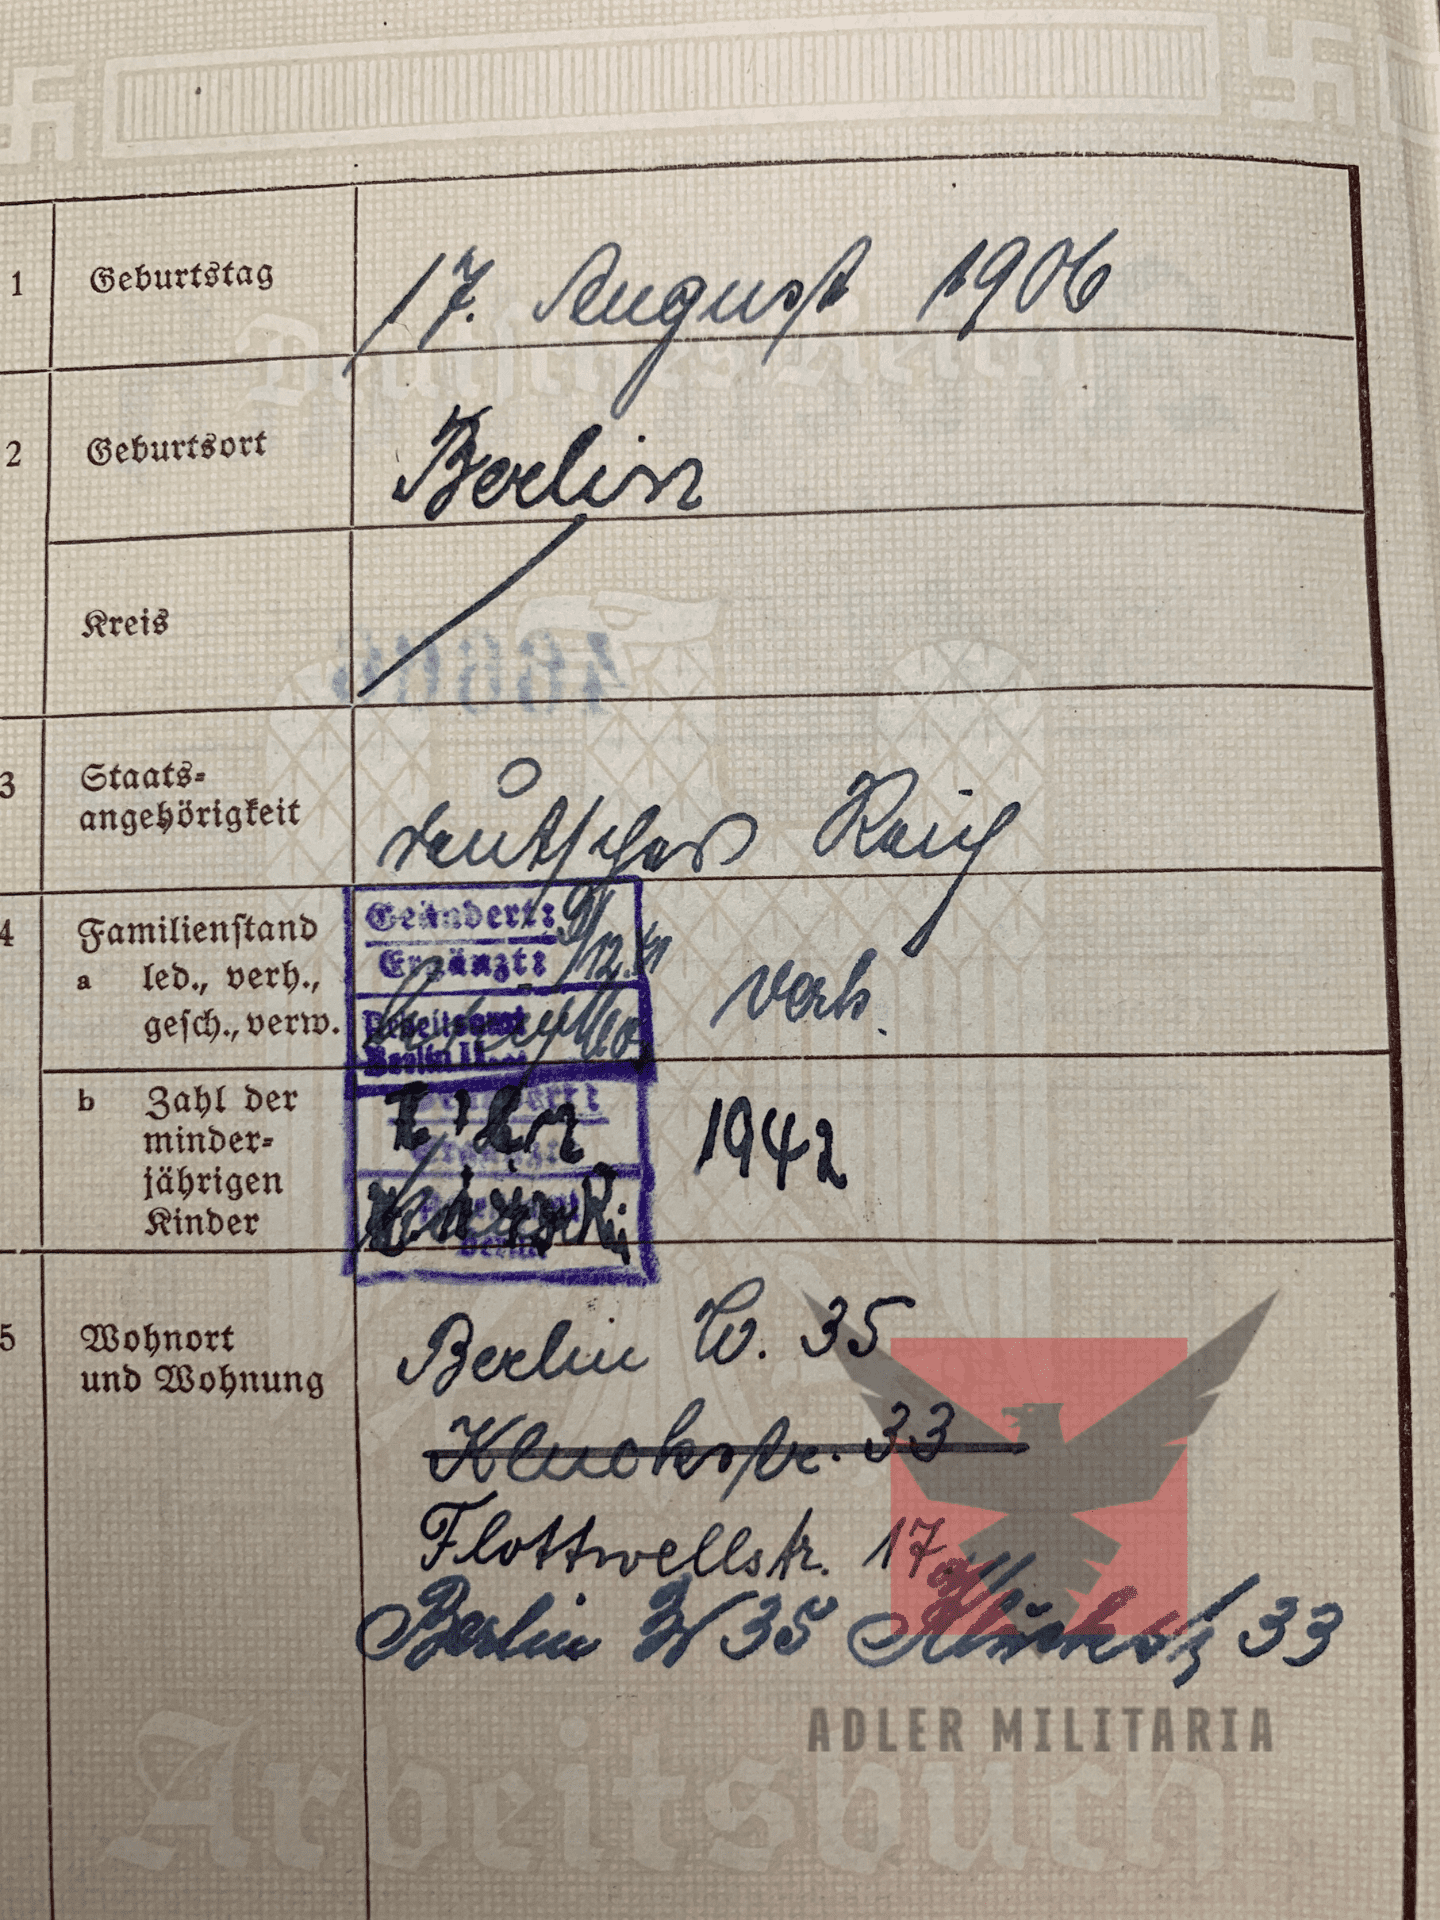 1 Geburtstag 17. August 1906
2 Geburtsort Berlin
Kreis
3 Staats-
angehörigkeit deutsches Reich
4 Familienstand
a led., verh.,
gesch., verw. verh.
Geändert: 9/12.41
Ergänzt:
Arbeitsamt
Berlin
b Zahl der
minder-
jährigen
Kinder
1942
5 Wohnort
und Wohnung
Berlin W. 35
Kluckstr. 33
Flottwellstr. 17
Berlin W 35 Kluckstr 33
ADLER MILITARIA
Deutsches Reich
Arbeitsbuch